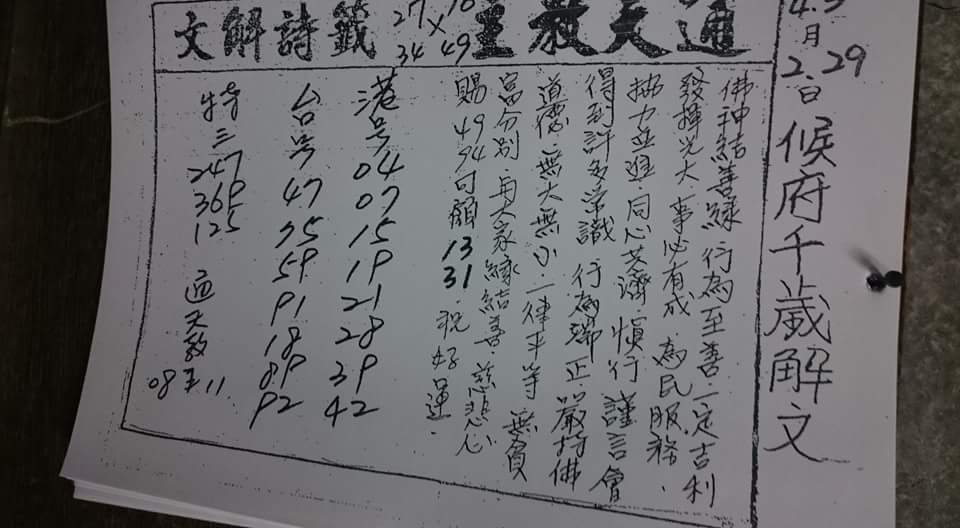 月 2.29日 候府千歲解文
通天教主 籤詩解文
27 × 34 49
佛神結善緣 行為至善.一定吉利
發揮光大.事必有成.為民服務.
力並進.同心共濟.慎行謹言會
得到許多常識 行為端正.嚴持佛
道德.無大無小.一律平等 無貧
富分別.與大家緣結善.慈悲心
賜 49 94 可願 13 31.祝好運.
港号 04 07 15 19 21 28 39 42
台号 47 75 59 91 18 89 92
特三 247 369 125 通天教